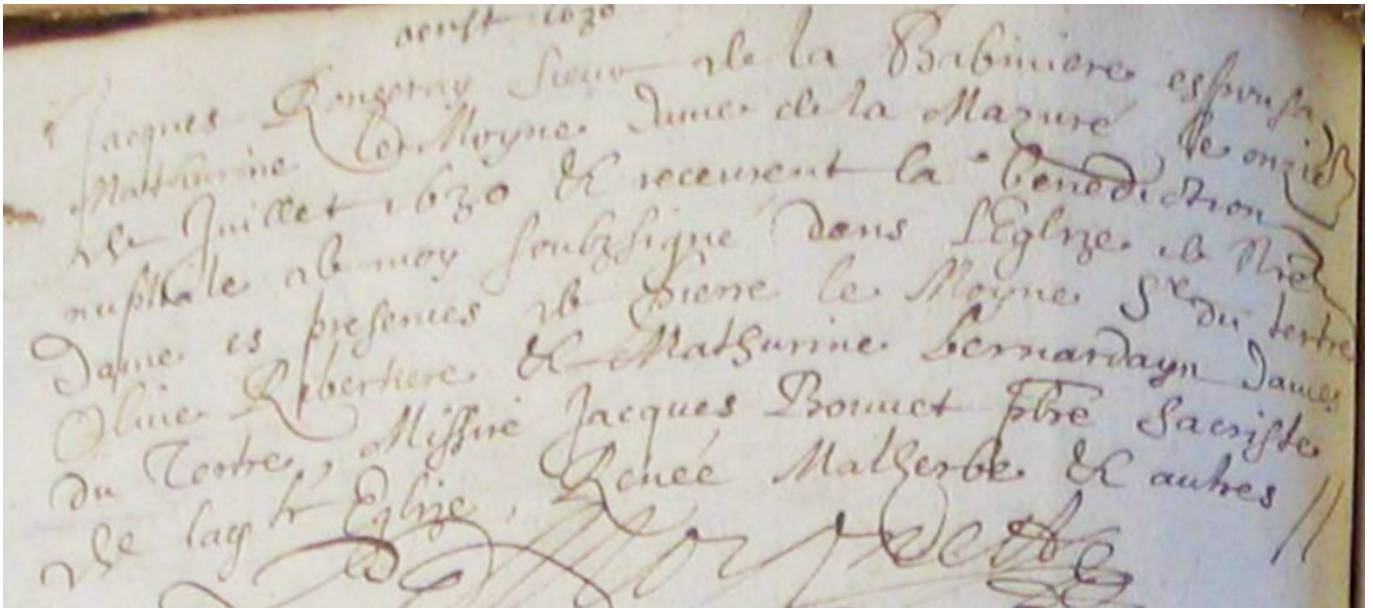 aoust 1630
Jacques Rongeray sieur de la Babiniere espousa
Mathurine Le Moyne dame de la Mazure le onzie
de Juillet 1630 & receurent la benediction
nuptiale de moy soubzsigne dans l'Eglize de Nre
dame es presences de Pierre le Moyne Sr du tertre
Olive Rebertiere & Mathurine Bernardayn dames
du Tertre, Missire Jacques Bonnet pbre Sacriste
de lad Eglize, Renée Malherbe & autres //